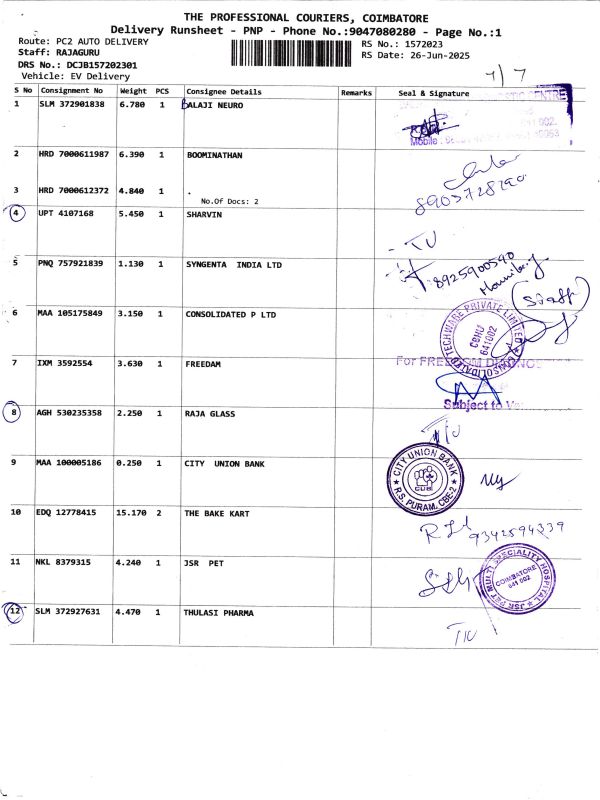 THE PROFESSIONAL COURIERS, COIMBATORE
Delivery Runsheet - PNP - Phone No.:9047080280 - Page No.:1
Route: PC2 AUTO DELIVERY
RS No.: 1572023
Staff: RAJAGURU
RS Date: 26-Jun-2025
DRS No.: DCJB157202301
Vehicle: EV Delivery
7/7
S No Consignment No Weight PCS Consignee Details Remarks Seal & Signature
1 SLM 372901838 6.780 1 BALAJI NEURO
2 HRD 7000611987 6.390 1 BOOMINATHAN
8903728290
3 HRD 7000612372 4.840 1 .
No.Of Docs: 2
4 UPT 4107168 5.450 1 SHARVIN
5 PNQ 757921839 1.130 1 SYNGENTA INDIA LTD
8925900590
(Staff)
6 MAA 105175849 3.150 1 CONSOLIDATED P LTD
CONSOLIDATED TECHWARE PRIVATE LIMITED
CBHU
641002
7 IXM 3592554 3.630 1 FREEDAM
Subject to
8 AGH 530235358 2.250 1 RAJA GLASS
9 MAA 100005186 0.250 1 CITY UNION BANK
CITY UNION BANK
CUB
R.S. PURAM, CBE-2
10 EDQ 12778415 15.170 2 THE BAKE KART
9342594339
11 NKL 8379315 4.240 1 JSR PET
JSR PET MULTI SPECIALITY HOSPITAL
COIMBATORE
641 002
12 SLM 372927631 4.470 1 THULASI PHARMA